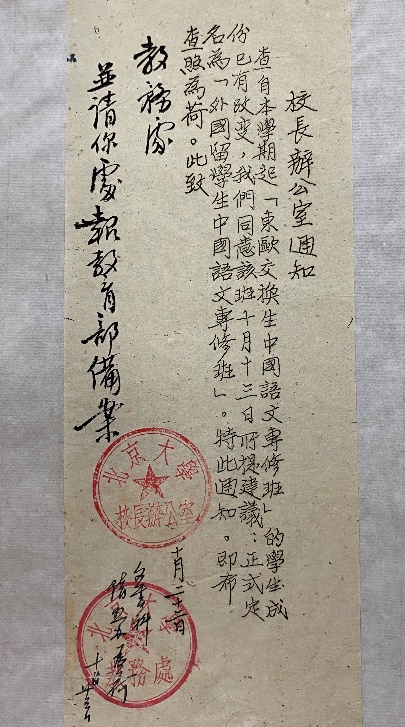 校長辦公室通知
查自本學期起「東歐交換生中國語文專修班」的學生成
份已有改变，我們同意該班十月十三日所提建議：正式定
名為「外國留學生中國語文專修班」。特此通知。即希
查照為荷。此致
教務處
並請你處報教育部備案
北京大學
校長辦公室
十月二十二日
教務處